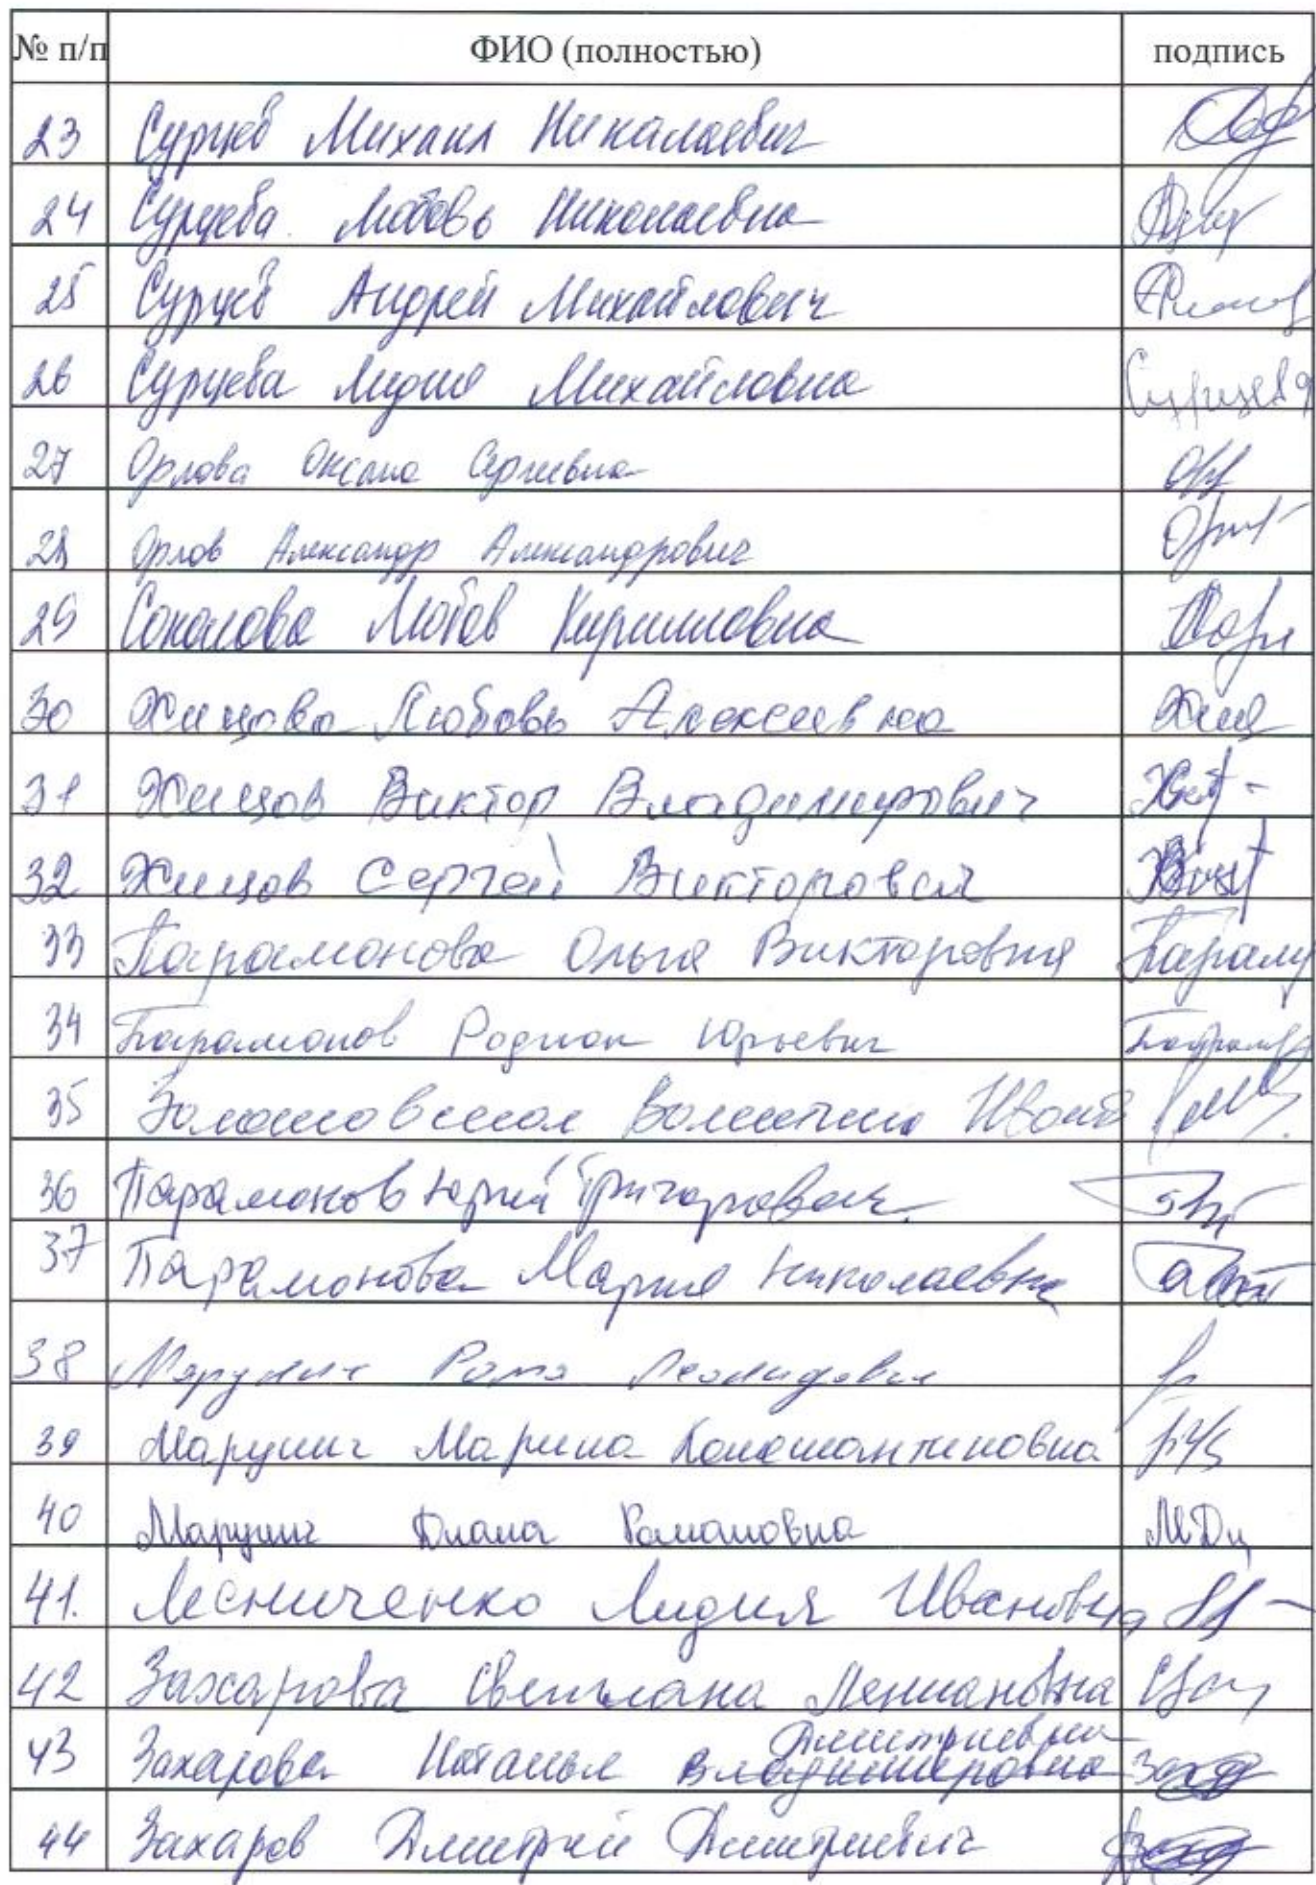 № п/п ФИО (полностью) подпись
23 Сурцев Михаил Николаевич
24 Сурцева Любовь Николаевна
25 Сурцев Андрей Михайлович
26 Сурцева Лидия Михайловна Сурцева
27 Орлова Оксана Сергеевна
28 Орлов Александр Александрович
29 Соколова Любов Кирилловна
30 Хицова Любовь Алексеевна Хиц
31 Хицов Виктор Владимирович
32 Хицов Сергей Викторович
33 Парамонова Ольга Викторовна
34 Парамонов Родион Юрьевич
35 Иван
36 Парамонов Юрий Григорович
37 Парамонова Мария Николаевна
38 Рома Леонидович
39 Марунич Марина Константиновна
40 Марунич Диана Романовна
41. Лесниченко Лидия Ивановна
42 Захарова Светлана
43 Захарова Наталья Дмитриевна Владимировна
44 Захаров Дмитрий Дмитриевич